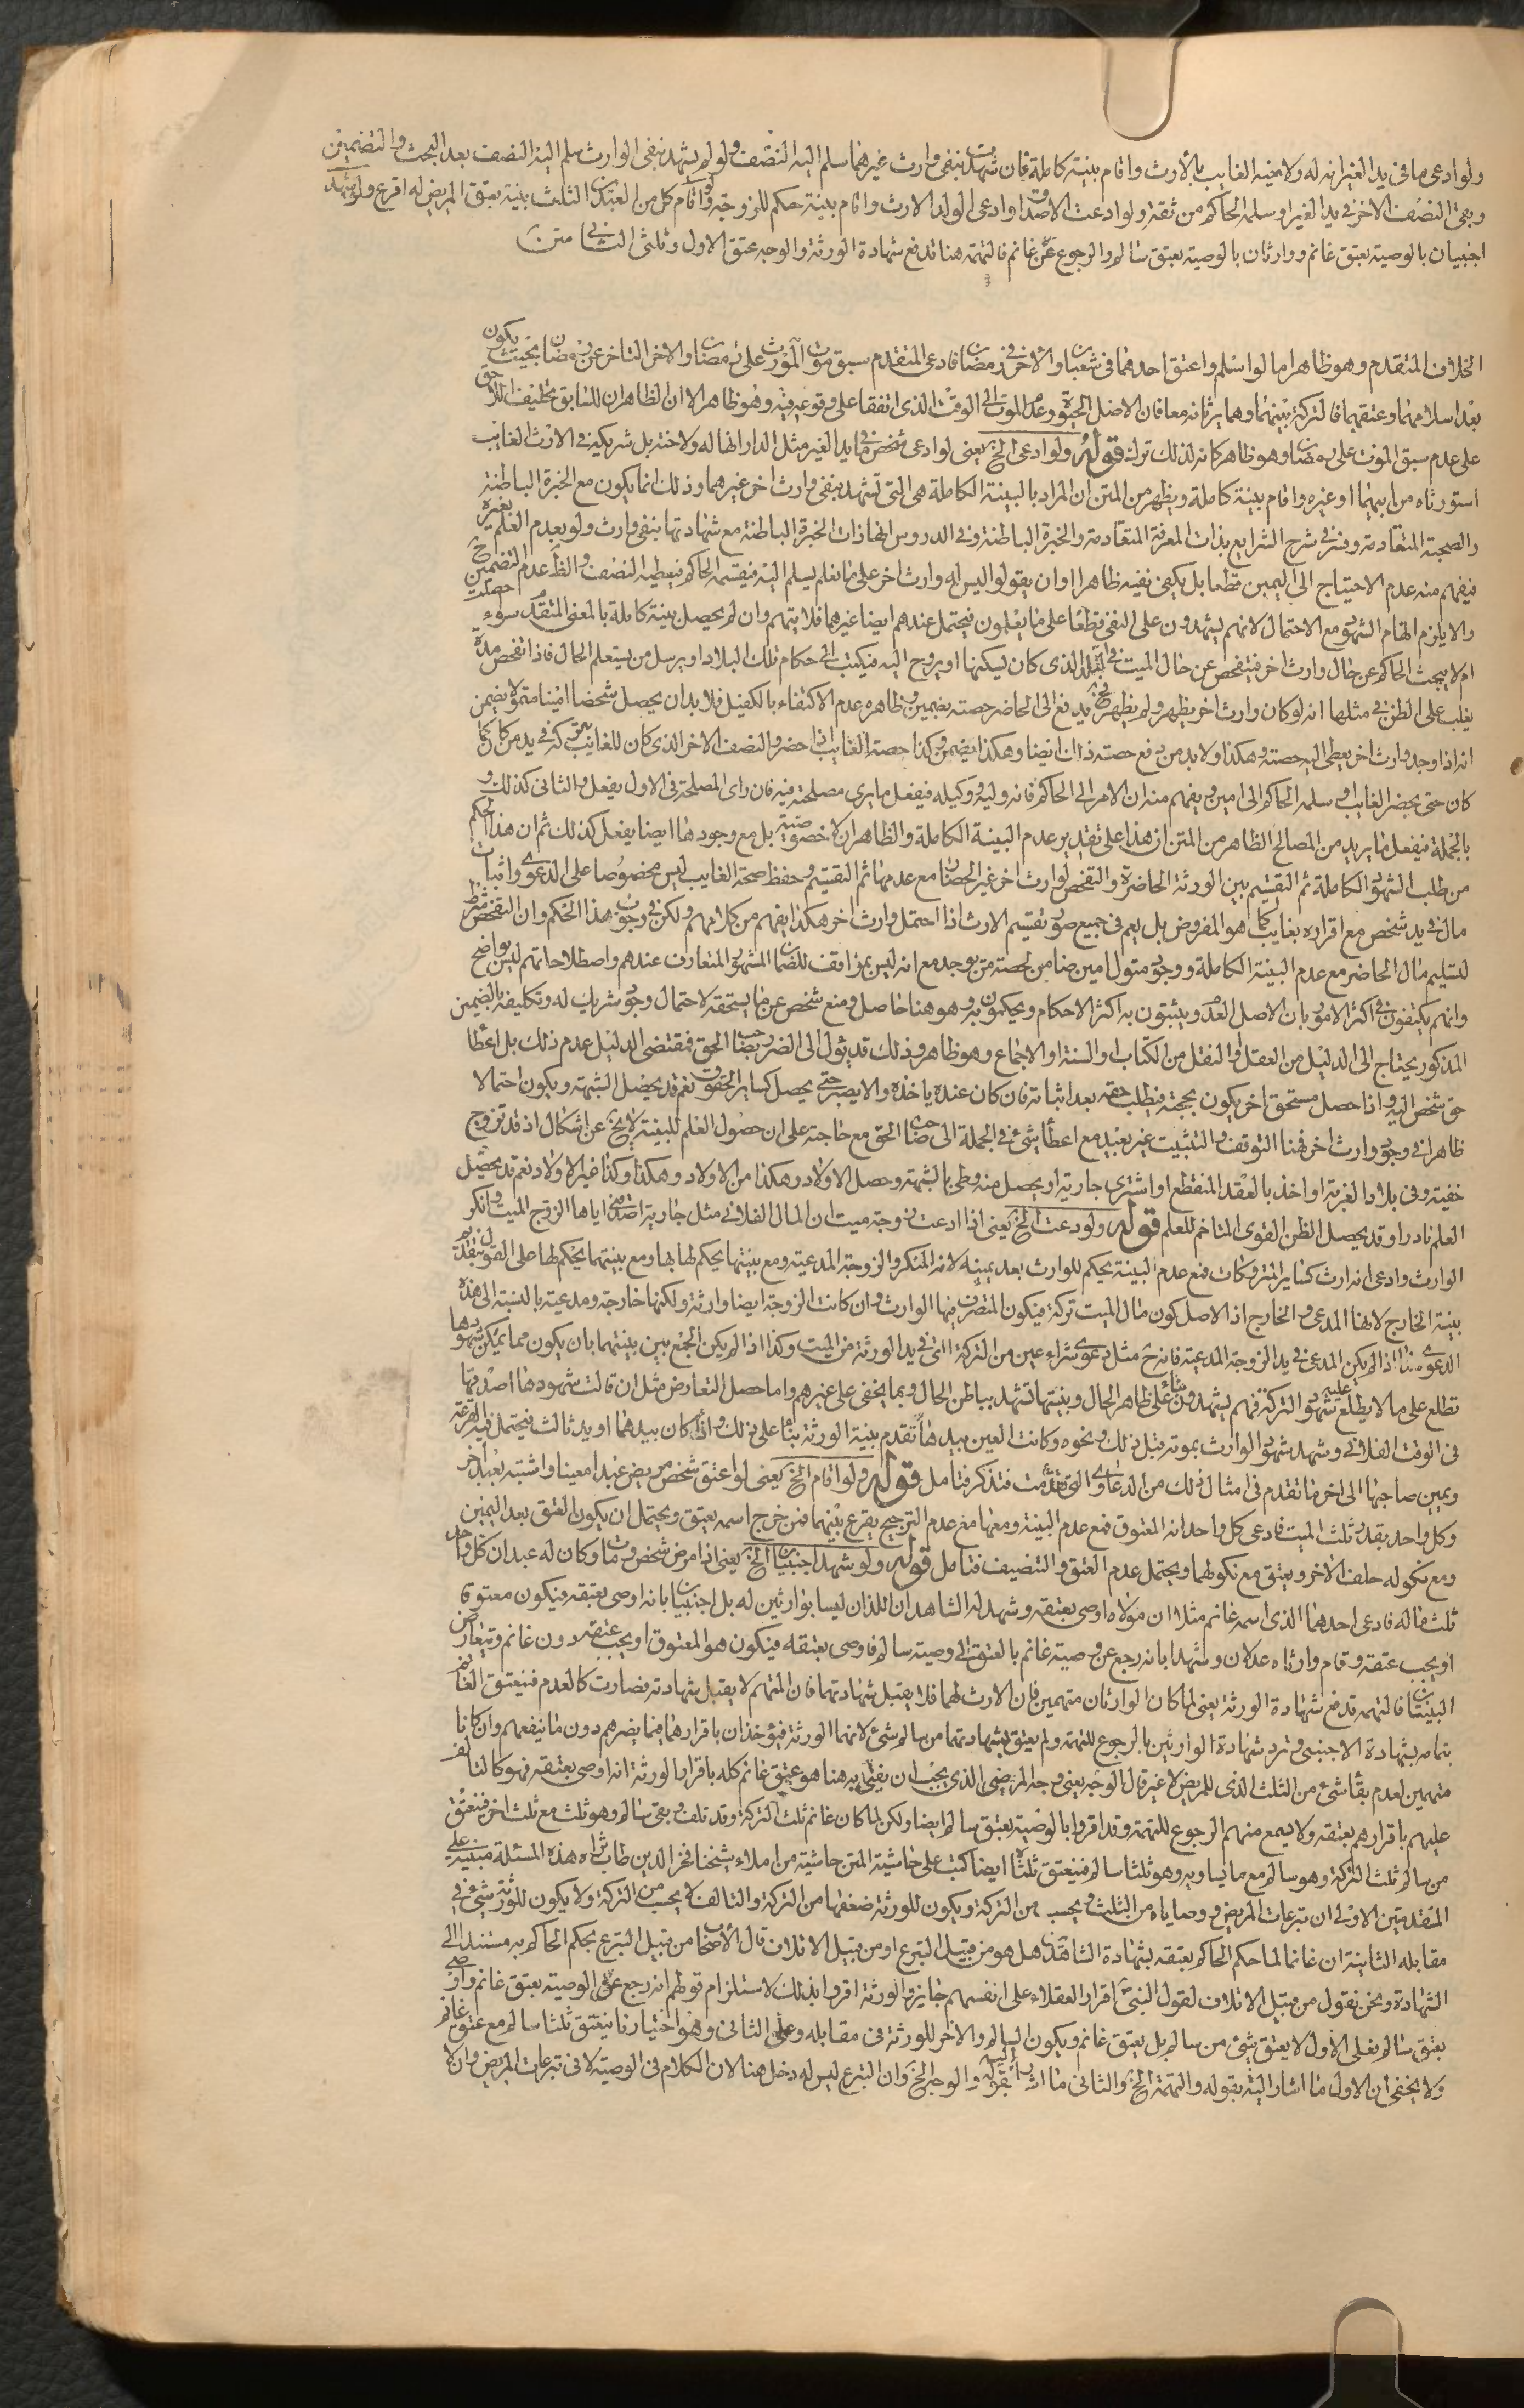 ولو ادعى ما في يد الغير انه له ولاخيه الغايب بالأرث واقام بينة كاملة فان شهدت بنفي وارث غيرهما سلم اليه النصف ولو لم يشهد بنفي الوارث سلم اليه النصف بعد البحث والتضمين
وبقى النصف الاخر في يد الغير او سلمه الحاكم من ثقة ولو ادعت الاصداق وادعى الولد الارث واقام بينة حكم للزوجة ولو اقام كل من العبدين الثلث بينة بعتق المريض له اقرع ولو شهد
اجنبيان بالوصية بعتق غانم ووارثان بالوصية بعتق سالم والرجوع عن غانم فالتهمة هنا تدفع شهادة الورثة والوجه عتق الاول وثلثى الثاني متن
الخلاف المتقدم وهو ظاهر اما لو اسلم واعتق احدهما في شعبان والاخر في رمضان فادعى المتقدم سبق موت المورث على رمضان والاخر التاخر عن رمضان بحيث يكون
بعد اسلامهما وعتقهما فالتركة بينهما وهما يرثانه معا فان الاصل الحيوة وعدم الموت الى الوقت الذى اتفقا على وقوعه فيه وهو ظاهر الا ان الظاهر ان للسابق تحليف اللاحق
على عدم سبق الموت على رمضان وهو ظاهر كانه لذلك ترك قوله ولو ادعى الخ يعنى لو ادعى شخص في ما يد الغير مثل الدار انها له ولاخيه بل شريكه في الارث الغايب
استورثاه من ابيهما او غيره واقام بينة كاملة ويظهر من المتن ان المراد بالبينة الكاملة هى التى تشهد بنفي وارث اخر غيرهما وذلك انما يكون مع الخبرة الباطنة
والصحبة المتقادمة وفسر في شرح الشرايع بذات المعرفة المتقادمة والخبرة الباطنة وفي الدروس انها ذات الخبرة الباطنة مع شهادتها بنفي وارث ولو بعدم العلم بغيره
فيفهم منه عدم الاحتياج الى اليمين قطعا بل يكفى نفيه ظاهرا وان يقولوا ليس له وارث اخر على ما نعلم يسلم اليه فيقسمه الحاكم فيعطيه النصف والظ عدم التضمين ح
والا يلزم اتهام الشهود مع الاحتمال لانهم يشهدون على النفي قطعا على ما يعلمون فيحتمل عندهم ايضا غيرهما فلا يتهم وان لم يحصل بينة كاملة بالمعنى المتقدم سواء حصلت
ام لا يبحث الحاكم عن حال وارث اخر فيتفحص عن حال الميت في البلد الذى كان يسكنها او يروح اليه فيكتب الى حكام تلك البلاد او يرسل من يستعلم الحال فاذا تفحص مدة
يغلب على الظن في مثلها انه لو كان وارث اخر يظهر ولم يظهر فح يدفع الى الحاضر حصته بضمين وظاهره عدم الاكتفاء بالكفيل فلا بد ان يحصل شخصا امينا متمولا يضمن
انه اذا وجد وارث اخر يعطى اليه حصته وهكذا ولا بد من دفع حصته ذلك ايضا وهكذا يضمن وكذا حصة الغايب اذا حضر والنصف الاخر الذى كان للغايب يترك في يد من كان كما
كان حتى يحضر الغايب او سلمه الحاكم الى امين ويفهم منه ان الامر الى الحاكم فانه وليه ووكيله فيفعل ما يرى مصلحته فيه فان راى المصلحة في الاول يفعل والثاني كذلك و
بالجملة فيفعل ما يريد من المصالح الظاهر من المتن ان هذا على تقدير عدم البينة الكاملة والظاهر ان لا خصوصية بل مع وجودها ايضا يفعل كذلك ثم ان هذا الحكم
من طلب الشهود الكاملة ثم التقسيم بين الورثة الحاضرة والتفحص لوارث اخر غير الحاضر مع عدمها ثم التقسيم وحفظ صحة الغايب ليس مخصوصا على الدعوى واثبات
مال في يد شخص مع اقراره بغايب كما هو المفروض بل يعم في جميع صور تقسيم الارث اذا احتمل وارث اخر هكذا يفهم من كلامهم ولكن في وجوب هذا الحكم وان التفحص شرط
لتسليم مال الحاضر مع عدم البينة الكاملة ووجود متول امين ضامن لحصة من يوجد مع انه ليس بموافق للضمان المشهور المتعارف عندهم واصطلاحاتهم ليس بواضح
وانهم يكتفون في اكثر الامور بان الاصل العدم ويثبتون به اكثر الاحكام ويحكمون به وهو هنا حاصل ومنع شخص عن ما يستحقه لاحتمال وجود شريك له وتكليفه بالضمين
المذكور يحتاج الى الدليل من العقل او النقل من الكتاب او السنة او الاجماع وهو ظاهر وذلك قد يئول الى الضرر بصاحب الحق فمقتضى الدليل عدم ذلك بل اعطا
حق شخص اليه واذا حصل مستحق اخر يكون بحجته فيطلب حقه بعد اثباته فان كان عنده ياخذه والا يصبر حتى يحصل كساير الحقوق نعم قد يحصل الشبهة ويكون احتمالا
ظاهرا في وجود وارث اخر فهنا التوقف والتثبيت غير بعيد مع اعطا شئ في الجملة الى صاحب الحق مع حاجته على ان حصول العلم للبينة لا يخ عن اشكال اذ قد تزوج
خفية وفي بلاد الغربة او اخذ بالعقد المنقطع او اشترى جارية او يحصل منه وطى بالشبهة وحصل الاولاد وهكذا من الاولاد وهكذا وكذا غير الاولاد نعم قد يحصل
العلم نادرا وقد يحصل الظن القوى المتاخم للعلم قوله ولو ادعت الخ يعنى اذا ادعت زوجة ميت ان المال الفلاني مثل جارية اصدقها اياها الزوج الميت وانكر
الوارث وادعى انه ارث كساير المتروكات فمع عدم البينة يحكم للوارث بعد يمينه لانه المنكر والزوجة المدعية ومع بينتها يحكم لها بها ومع بينتهما يحكم لها على القول بتقديم
بينة الخارج لانها المدعى والخارج اذ الاصل كون مال الميت تركة فيكون المتصرف فيها الوارث وان كانت الزوجة ايضا وارثة ولكنها خارجة ومدعية بالنسبة الى هذه
الدعوى هذا اذا لم يكن المدعى في يد الزوجة المدعية فانه ح مثل دعوى شراء عين من التركة التى في يد الورثة من الميت وكذا اذا لم يكن الجمع بين بينتهما بان يكون مما يمكن شهودها
تطلع على ما لا يطلع عليه شهود التركة فهم يشهدون بناء على ظاهر الحال وبينتها تشهد بباطن الحال وبما يخفى على غيرهم واما حصل التعارض مثل ان قالت شهودها اصدقها
في الوقت الفلاني وشهد شهود الوارث بموته قبل ذلك ونحوه وكانت العين بيدها تقدم بينة الورثة بناء على ذلك واذا كان بيدهما او يد ثالث فيحتمل فيه القرعة
ويمين صاحبها الى اخر ما تقدم في امثال ذلك من الدعاوى التى تقدمت فتذكر فتامل قوله ولو اقام الخ يعنى لو اعتق شخص مريض عبدا معينا واشتبه بعبد اخر
وكل واحد بقدر ثلث الميت فادعى كل واحد انه المعتوق فمع عدم البينة ومعها مع عدم الترجيح يقرع بينهما فمن خرج اسمه يعتق ويحتمل ان يكون العتق بعد اليمين
ومع نكوله حلف الاخر ويعتق مع نكولهما ويحتمل عدم العتق والتنصيف فتامل قوله ولو شهد اجنبيان الخ يعنى اذا مرض شخص ومات وكان له عبدان كل واحد
ثلث ماله فادعى احدهما الذى اسمه غانم مثلا ان مولاه اوصى بعتقه وشهد له الشاهدان اللذان ليسا بوارثين له بل اجنبيان بانه اوصى بعتقه فيكون معتوقا
او يجب عتقه وقام وارثاه عدلان وشهدا بانه رجع عن وصية غانم بالعتق الى وصية سالم فاوصى بعتقه فيكون هو المعتوق او يجب عتقه دون غانم وتعارض
البينتان فالتهمة تدفع شهادة الورثة يعنى لما كان الوارثان متهمين فان الارث لهما فلا يقبل شهادتهما فان المتهم لا يقبل شهادته فصارت كالعدم فينعتق الغانم
بتمامه بشهادة الاجنبى وترد شهادة الوارثين بالرجوع للتهمة ولم يعتق بشهادتهما من سالم شئ لانهما الورثة فيؤخذان باقرارهما فيما يضرهم دون ما ينفعهم وان كانا
متهمين لعدم بقاء شئ من الثلث الذى للمريض لا غير قال الوجه يعنى وجه المرضى الذى يجب ان يفتى به هنا هو عتق غانم كله باقرار الورثة انه اوصى بعتقه فهو كالتالف
عليهم باقرارهم بعتقه ولا يسمع منهم الرجوع للتهمة وقد اقروا بالوصية بعتق سالم ايضا ولكن لما كان غانم ثلث التركة وقد تلف وبقى سالم وهو ثلث مع ثلث اخر فينعتق
من سالم ثلث التركة وهو سالم مع ما يساويه وهو ثلثا سالم فينعتق ثلثاه ايضا كتب على حاشية المتن حاشية من املاء شيخنا فخر الدين طاب ثراه هذه المسئلة مبنية على
المقدمتين الاولى ان تبرعات المريض ووصاياه من الثلث ويحسب من التركة ويكون للورثة ضعفها من التركة والتالف لا يحسب من التركة ولا يكون للورثة شئ في
مقابله الثانية ان غانما لما حكم الحاكم بعتقه بشهادة الشاهدين هل هو من قبيل التبرع او من قبيل الاتلاف قال الاصحاب من قبيل التبرع بحكم الحاكم به مستندا الى
الشهادة ونحن نقول من قبيل الاتلاف لقول النبى اقرار العقلاء على انفسهم جايز والورثة اقروا بذلك لاستلزام قولهم انه رجع عن الوصية بعتق غانم واوصى
بعتق سالم فعلى الاول لا يعتق شئ من سالم بل يعتق غانم ويكون السالم والاخر للورثة في مقابله وعلى الثاني وهو اختيارنا ينعتق ثلثا سالم مع عتق غانم
ولا يخفى ان الاول ما اشار اليه بقوله والتهمة الخ والثاني ما اشار اليه بقوله والوجه الخ وان التبرع ليس له دخل هنا لان الكلام في الوصية لا في تبرعات المريض وان لا